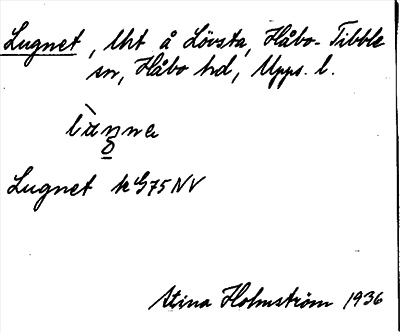 Lugnet, lht å Lövsta, Håbo-Tibble
sn, Håbo hd, Upps. l.
Lugnet k G75 NV
Stina Holmström 1936